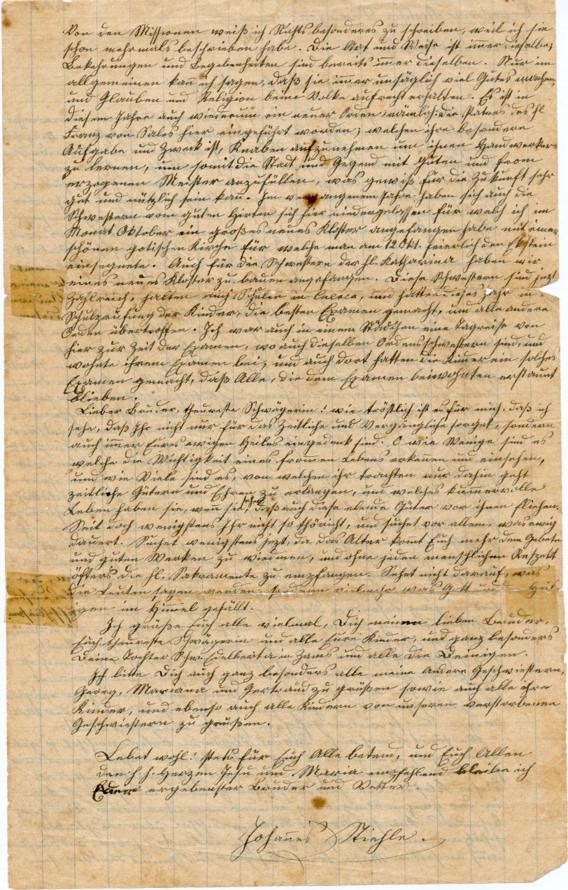 Von den Missionen weiß ich Nichts besonderes zu schreiben, weil ich sie
schon mehrmals beschrieben habe. Die Art und Weise ist imer dieselbe,
Bekehrungen und Begebenheiten sind bereits imer dieselben. Nur im
allgemeinen kan ich sagen, daß sie imer unsäglich viel Gutes machen
und Glauben und Religion beim Volke aufrecht erhalten. Es ist in
diesem Jahre auch wiederum ein neuer Orden, nämlich der Patres des hl.
Franz von Sales hier eingeführt worden; welchen ihre besondere
Aufgabe und Zweck ist, Knaben aufzunehmen um ihnen Handwerker
zu lernen, um somit die Stadt und Gegend mit guten und from
erzogenen Meister anzufüllen, was gewiß für die Zukunft sehr
gut und nützlich sein kan. Im vergangenem Jahre haben sich auch die
Schwestern vom guten Hirten sich hier niedergelassen für welch ich im
Monat Oktober ein großes neues Kloster angefangen habe mit einer
schönen gotischen Kirche für welche man am 12 Okt. feierlich den stein
einsegnete. Auch für die Schwestern der hl. Katharina haben wir
eines neues Kloster zu bauen angefangen. Diese Schwestern sind sehr
zahlreich, halten auch Schulen in Cuenca, und hatten dieses Jahr in
Schulprüfung der Kinder, die besten Examen gemacht, um alle andere
Orden übertroffen. Ich war auch in einem Städtchen eine Tagreise von
hier zur Zeit der Examen, wo auch dieselben Ordensschwestern sind, und
wohnte ihrem Examen bei, und auch dort hatten die Kinder ein solches
Examen gemacht, daß Alle, die dem Examen beiwohnten erstaunt
blieben.
Lieber Bruder, theuerste Schwägerin! wie tröstlich ist es für mich, daß ich
sehe, daß Ihr nicht nur für das Zeitliche und Vergängliche sorget, sondern
auch imer Eures ewigen Heiles eingedenk sind. O wie Wenige sind es
welche die Wichtigkeit eines fromen Lebens erkennen und einsehen,
und wie Viele sind es, von welchen ihr trachten nur dahin geht
zeitliche Gütern und Ehren zu erlangen, und welches Kummervolle
Leben haben sie, wen sie sehen, daß auch diese elende Güter vor ihnen fliehen.
Seit doch wenigstens Ihr nicht so thöricht, und suchet vor allem, was ewig
dauert. Suchet wenigstens jezt, da das Alter komt Euch mehr dem Gebete
und guten Werken zu widmen, und ohne jeden menschlichen Respekt
öfters die hl. Sakramente zu empfangen. Sehet nicht darauf, was
die Leuten sagen werden, sondern vielmehr was Gott und Heil-
igen im Himel gefällt.
Ich grüße Euch alle vielmal, Dich meinen lieben Bruder,
Euch theuerste Schwägerin und alle Eure Kinder, und ganz besonders
Deine Tochter Schw. Edelberta in Zams und alle die Deinigen.
Ich bitte Dich auch ganz besonders alle meine andere Geschwiestern,
Georg, Mariana und Gertraud zu grüßen sowie auch alle ihre
Kinder, und ebenso auch alle Kindern von unseren verstorbenen
Geschwiestern zu grüßen.
Lebet wohl! stets für Euch Alle betend, und Euch Allen
den h. h. Herzen Jesu und Maria empfehlend bleibe ich
Euer ergebenster Bruder und Vetter.
Johannes Stiehle.